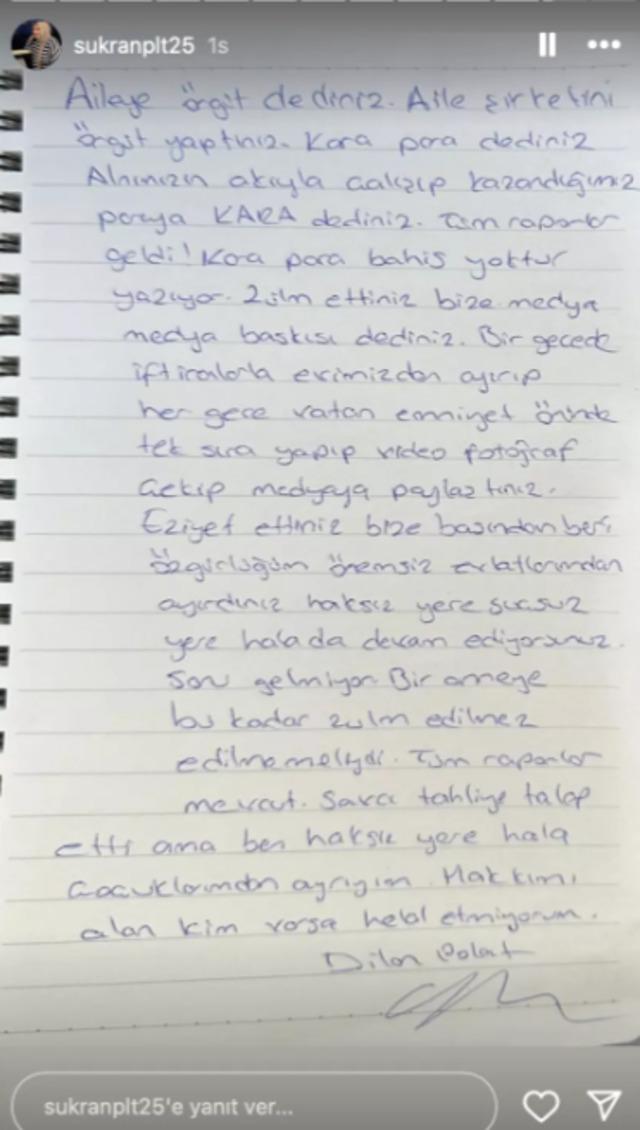 sukranplt25 1s
Aileye örgüt dediniz. Aile şirketini
örgüt yaptınız. Kara para dediniz
Alnımızın akıyla çalışıp kazandığımız
paraya KARA dediniz. Tüm raporlar
geldi! Kara para bahis yoktur
yazıyor. Zulm ettiniz bize medya
medya baskısı dediniz. Bir gecede
iftiralarla evimizden ayırıp
her gece vatan emniyet önünde
tek sıra yapıp video fotoğraf
çekip medyaya paylaştınız.
Eziyet ettiniz bize başından beri
özgürlüğüm önemsiz evlatlarımdan
ayırdınız haksız yere suçsuz
yere halada devam ediyorsunuz.
Sonu gelmiyor. Bir anneye
bu kadar zulm edilmez
edilmemeliydi. Tüm raporlar
mevcut. Savcı tahliye talep
etti ama ben haksız yere hala
çocuklarımdan ayrıyım. Hakkımı
alan kim varsa helal etmiyorum.
Dilan Polat
sukranplt25'e yanıt ver...